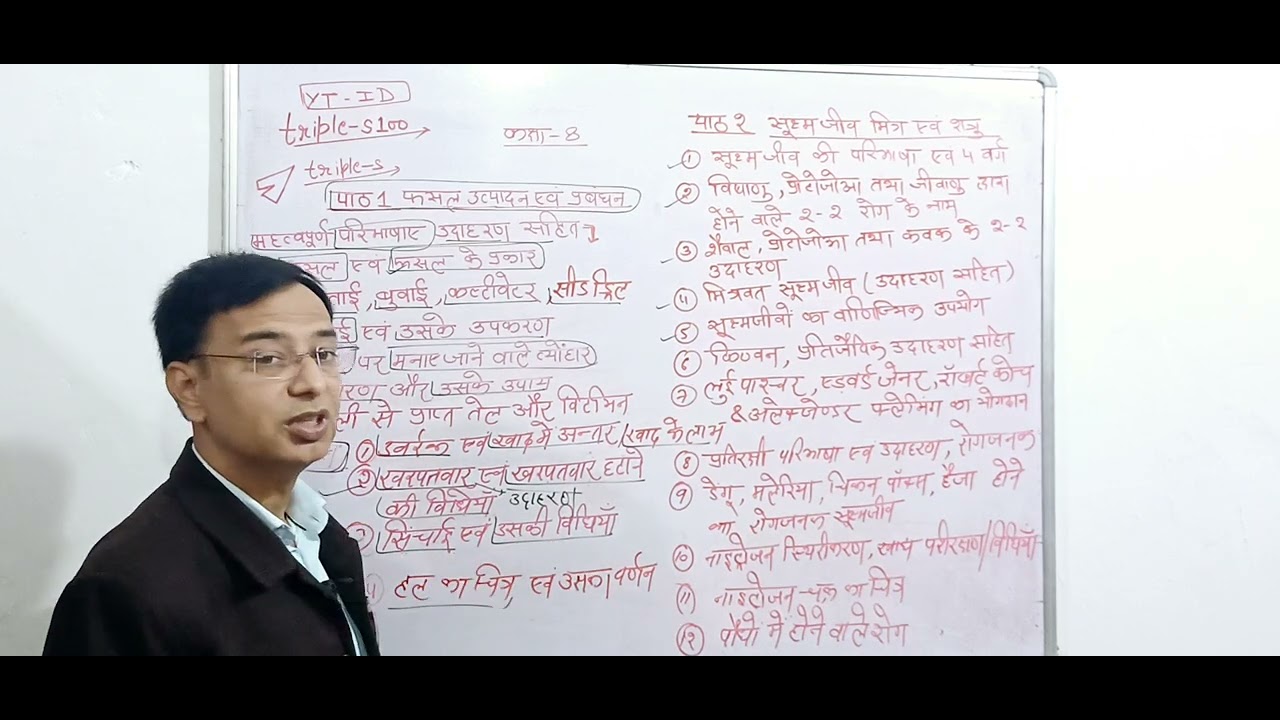 YT-ID
triple-s100
triple-s
कक्षा-8
पाठ 1 फसल उत्पादन एवं प्रबंधन
महत्वपूर्ण परिभाषाएं उदाहरण सहित
एवं फसल के प्रकार
, बुवाई, कल्टीवेटर, सीडड्रिल
एवं उसके उपकरण
पर मनाए जाने वाले त्योहार
और उसके उपाय
से प्राप्त तेल और विटामिन
① उवर्रक एवं खाद में अन्तर / खाद के लाभ
② खरपतवार एवं खरपतवार हटाने
की विधियाँ उदाहरण
सिंचाई एवं उसकी विधियाँ
हल का चित्र, एवं उसका वर्णन
पाठ २ सूक्ष्म जीव मित्र एवं शत्रु
① सूक्ष्म जीव की परिभाषा एवं 4 वर्ग
② विषाणु, प्रोटोजोआ तथा जीवाणु द्वारा
होने वाले २-२ रोग के नाम
③ शैवाल, प्रोटोजोआ तथा कवक के २-२
उदाहरण
④ मित्रवत सूक्ष्म जीव (उदाहरण सहित)
⑤ सूक्ष्मजीवों का वाणिज्यिक उपयोग
⑥ किण्वन, प्रतिजैविक उदाहरण सहित
⑦ लुई पास्चर, एडवर्ड जेनर, रॉबर्ट कोच
& अलेक्जेण्डर फ्लेमिंग का योगदान
⑧ प्रतिरक्षी परिभाषा एवं उदाहरण, रोगजनक
⑨ डेंगू, मलेरिया, चिकन पॉक्स, हैजा होने
का रोगजनक सूक्ष्मजीव
⑩ नाइट्रोजन स्थिरीकरण, खाद्य परीरक्षण/विधियाँ
⑪ नाइट्रोजन-चक्र का चित्र
⑫ पौधों में होने वाले रोग